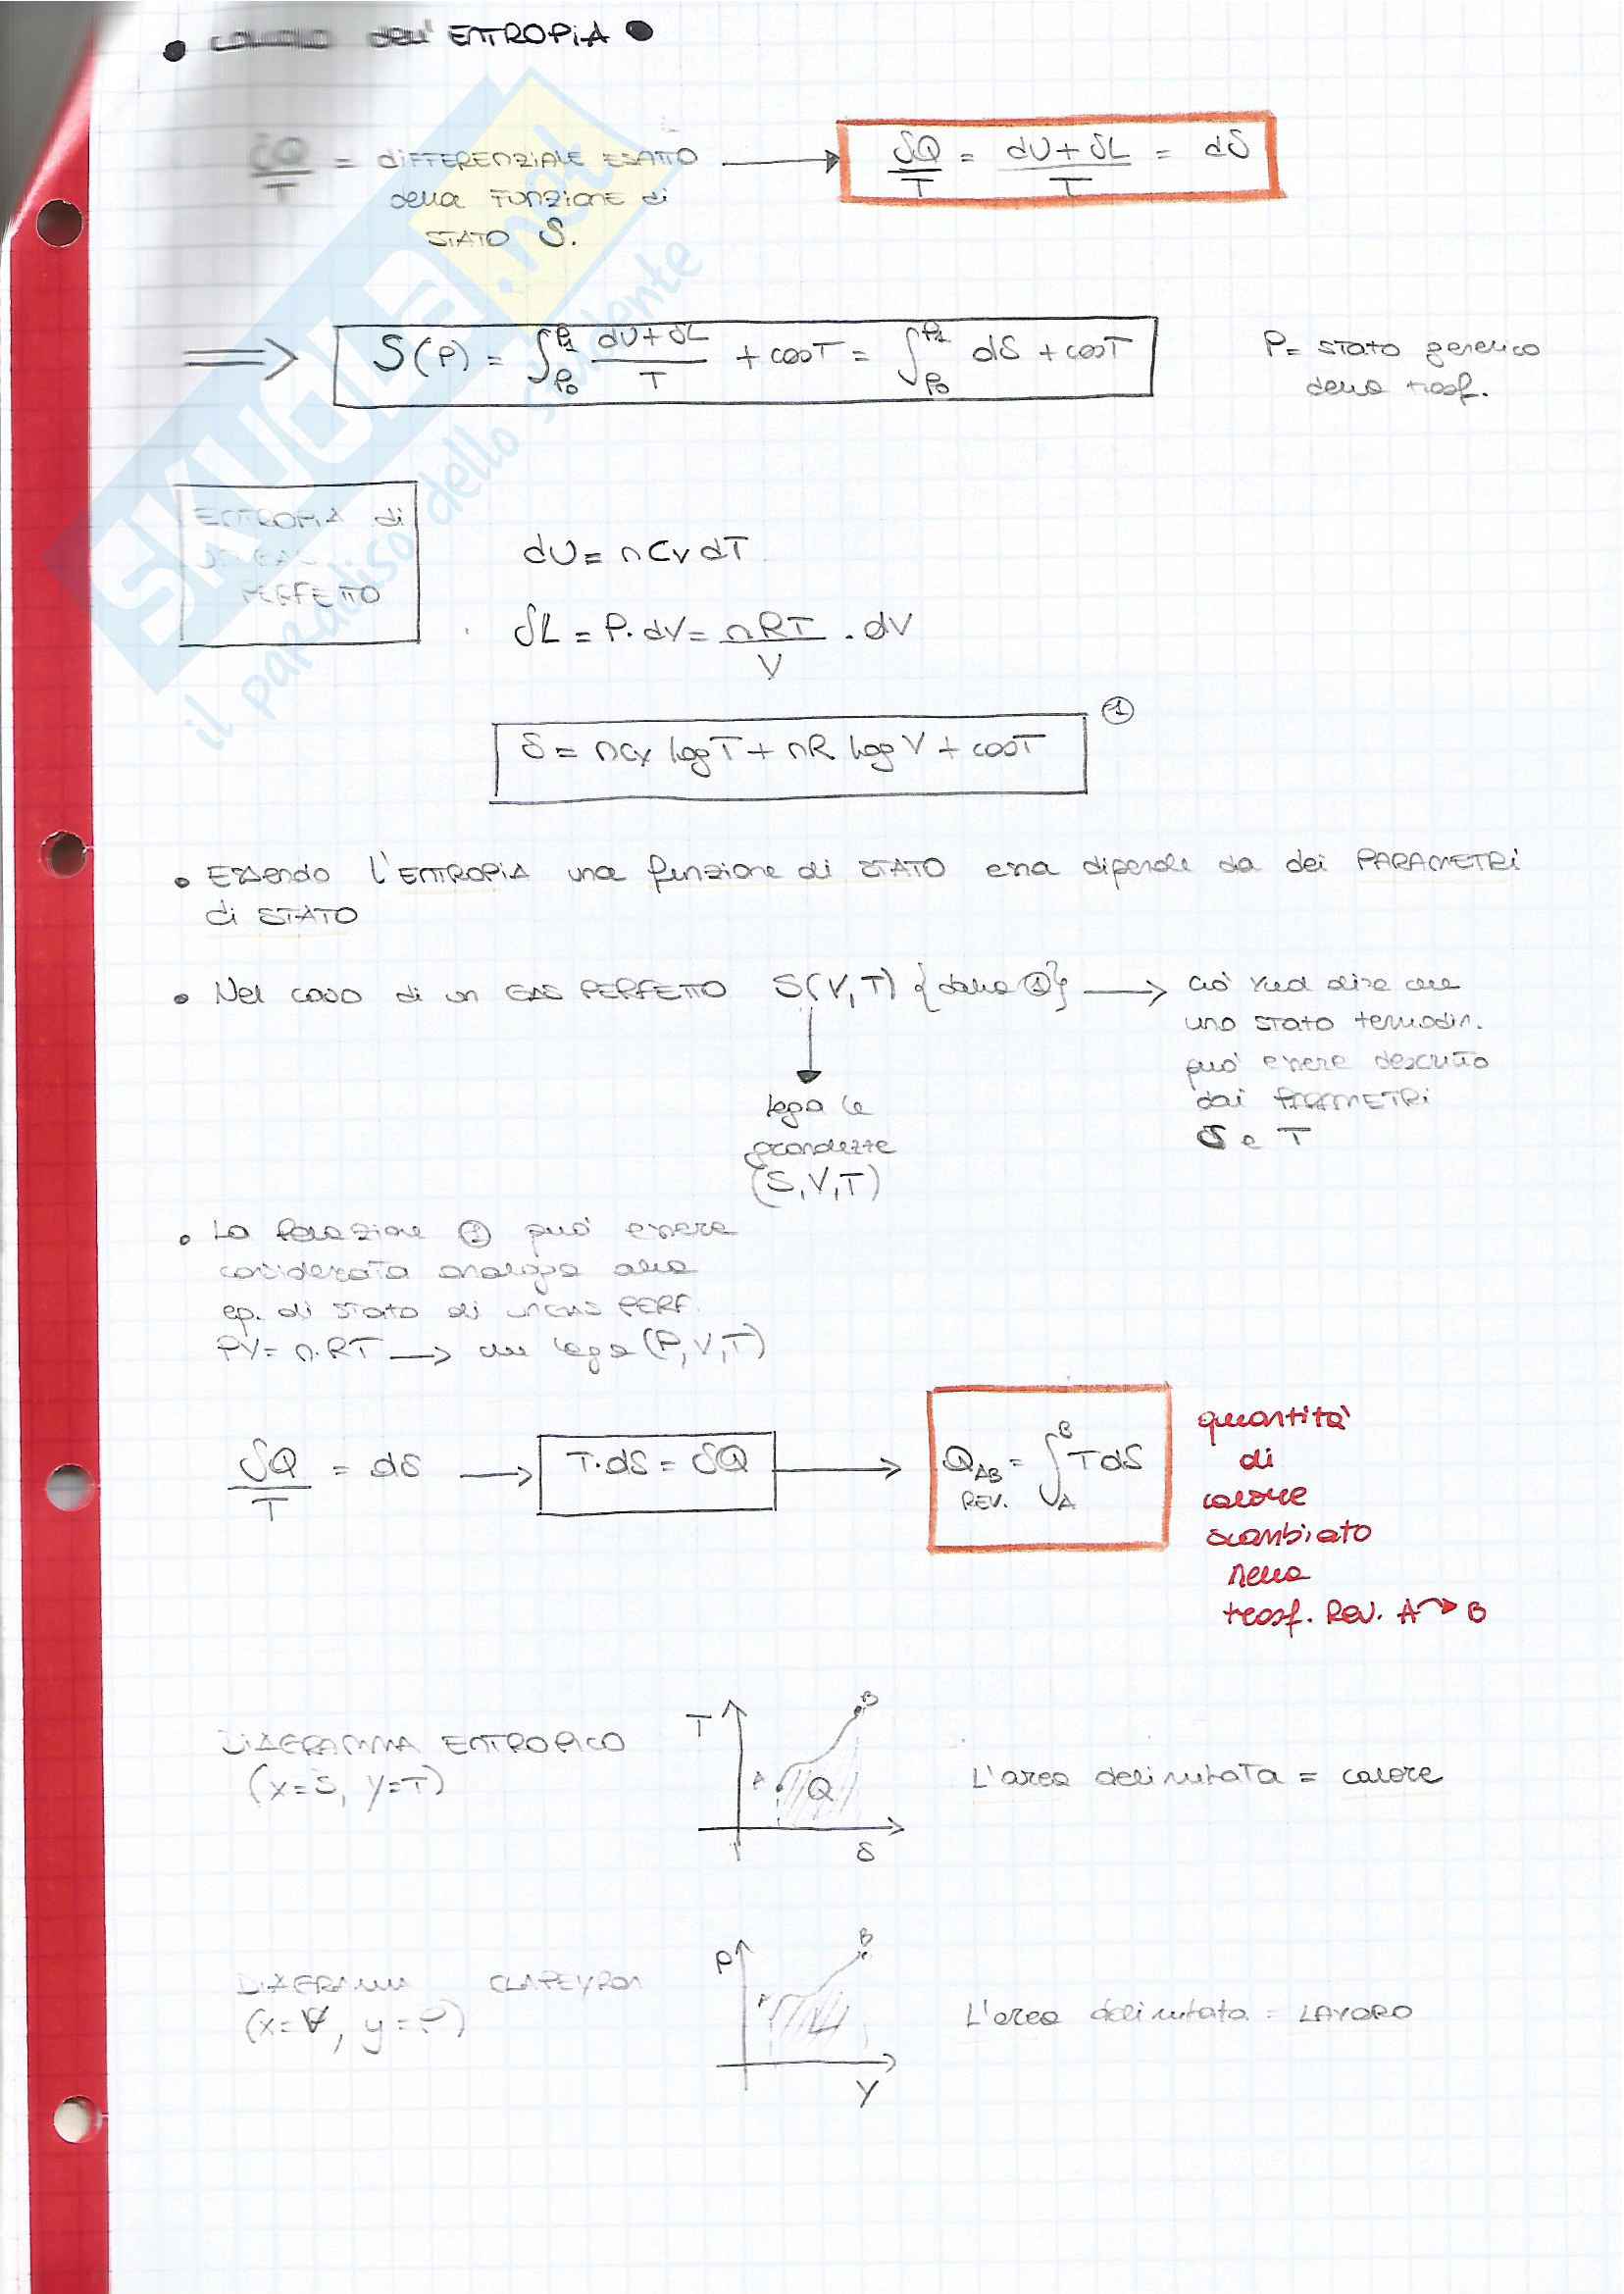 • calcolo dell'ENTROPIA •
δQ/T = DIFFERENZIALE ESATTO
della FUNZIONE di
STATO S.
δQ/T = (dU + δL)/T = dS
⟹ S(P) = ∫_{P0}^{P1} (dU + δL)/T + cosT = ∫_{P0}^{P1} dS + cosT
P = stato generico
della trasf.
ENTROPIA di
UN GAS
PERFETTO
dU = nCv dT
δL = P·dV = nRT/V · dV
S = nCv logT + nR logV + cosT ①
• Essendo l'ENTROPIA una funzione di STATO essa dipende da dei PARAMETRI
di STATO
• Nel caso di un GAS PERFETTO S(V,T) {dalla ①} →
ciò vuol dire che
uno stato termodin.
può essere descritto
dai PARAMETRI
S e T
lega le
grandezze
(S,V,T)
• La relazione ① può essere
considerata analoga alla
eq. di stato di un GAS PERF.
PV = n·RT → che lega (P,V,T)
δQ/T = dS → T·dS = δQ → Q_AB REV. = ∫_A^B T dS
quantità
di
calore
scambiato
nella
trasf. Rev. A→B
DIAGRAMMA ENTROPICO
(x=S, y=T)
T
B
A
Q
S
L'area delimitata = calore
DIAGRAMMA CLAPEYRON
(x=V, y=P)
P
B
A
L
V
L'area delimitata = LAVORO
SKUOLA.net
il paradiso dello studente